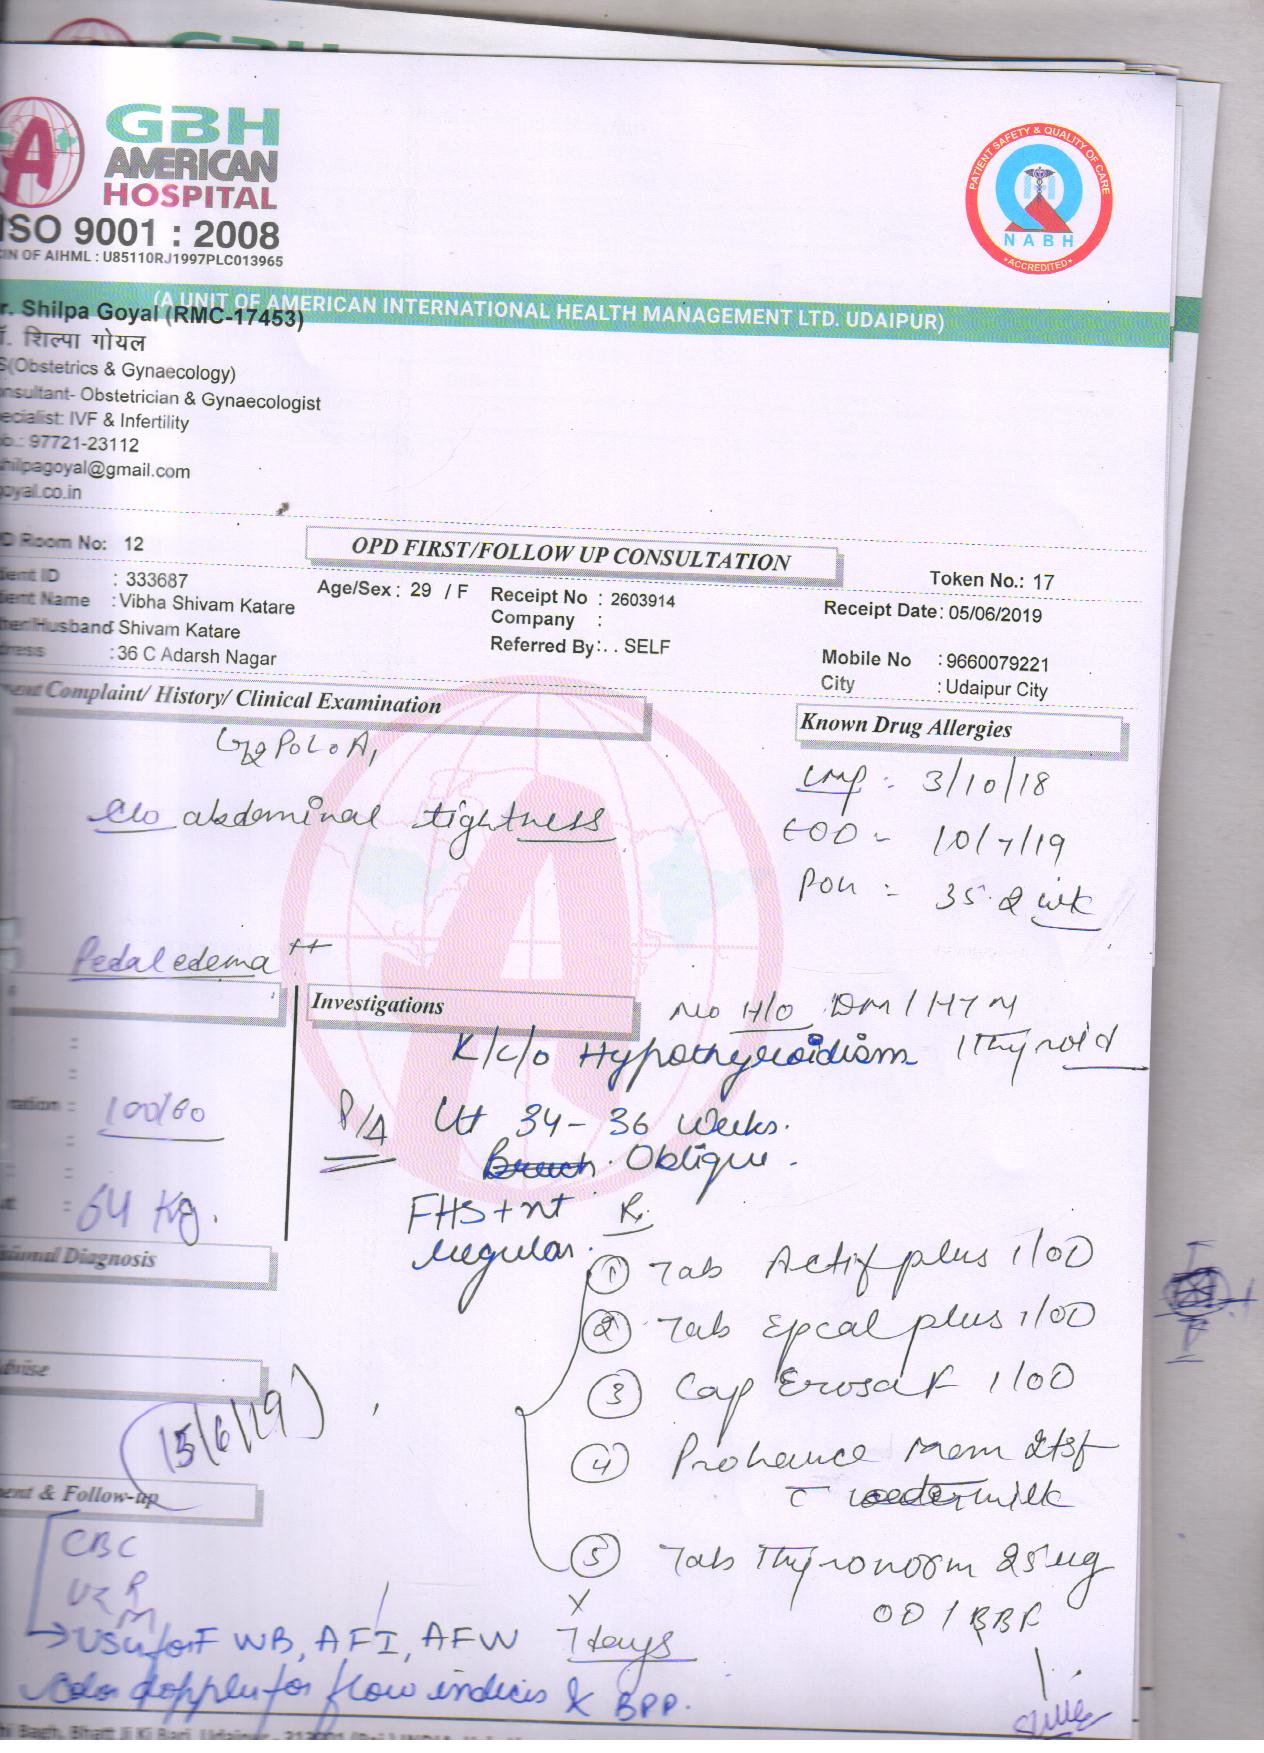 GBH
AMERICAN
HOSPITAL
ISO 9001 : 2008
CIN OF AIHML : U85110RJ1997PLC013965
PATIENT SAFETY & QUALITY OF CARE
NABH
ACCREDITED
(A UNIT OF AMERICAN INTERNATIONAL HEALTH MANAGEMENT LTD. UDAIPUR)
r. Shilpa Goyal (RMC-17453)
शिल्पा गोयल
S(Obstetrics & Gynaecology)
nsultant- Obstetrician & Gynaecologist
ecialist: IVF & Infertility
b.: 97721-23112
hilpagoyal@gmail.com
goyal.co.in
D Room No: 12
OPD FIRST/FOLLOW UP CONSULTATION
Token No.: 17
tient ID : 333687
Age/Sex : 29 / F
Receipt No : 2603914
Receipt Date: 05/06/2019
tient Name : Vibha Shivam Katare
Company :
her/Husband: Shivam Katare
Referred By: . . SELF
Mobile No : 9660079221
dress : 36 C Adarsh Nagar
City : Udaipur City
Complaint/ History/ Clinical Examination
Known Drug Allergies
G2P0L0A1
LMP : 3/10/18
c/o abdominal tightness
EDD - 10/7/19
POG = 35.2 wk
Pedal edema ++
Investigations
No H/o DM / HTN
K/c/o Hypothyroidism / Thyroid
100/60
P/A Ut 34-36 Weeks.
Breech. Oblique.
64 Kg.
FHS +nt Rx
regular.
sional Diagnosis
1 Tab Actif plus 1/OD
2 Tab Epcal plus 1/OD
dvise
3 Cap Erosa F 1/OD
15/6/19
4 Prohance Mom 2tsf
c milk
ent & Follow-up
CBC
5 Tab Thyronorm 25ug
OD / BBF
x
7 days
→ USG for FWB, AFI, AFW
Color doppler for flow indices & BPP.